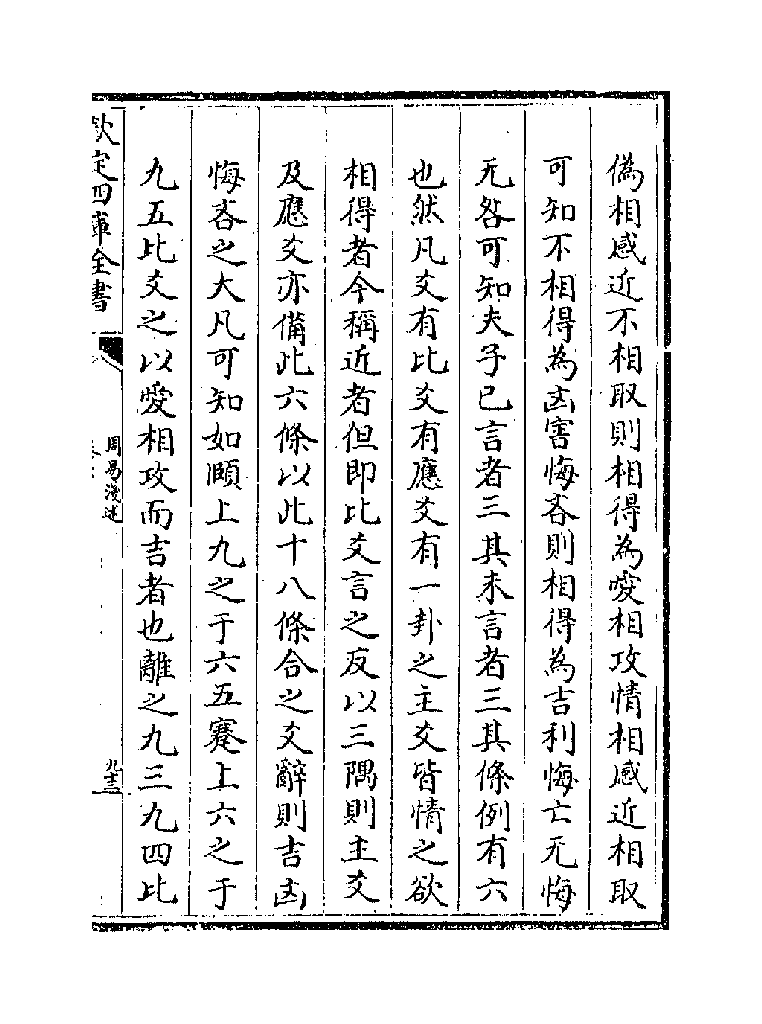 偽相感近不相取則相得為愛相攻情相感近相取
可知不相得為凶害悔吝則相得為吉利悔亡无悔
无咎可知夫子已言者三其未言者三其條例有六
也然凡爻有比爻有應爻有一卦之主爻皆情之欲
相得者今稱近者但即比爻言之反以三隅則主爻
及應爻亦備此六條以此十八條合之爻辭則吉凶
悔吝之大凡可知如頤上九之于六五蹇上六之于
九五比爻之以愛相攻而吉者也離之九三九四比
欽定四庫全書
周易淺述
九十三